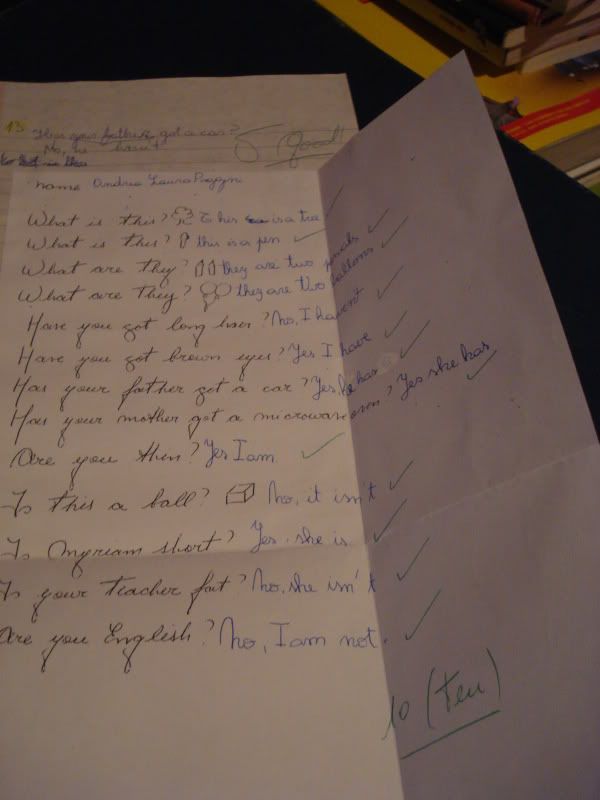 13 Has your father got a car?
No, he hasn't
(good)
name Andrea Laura
What is this? this is a tree
What is this? this is a pen
What are they? they are two pencils
What are they? they are two balloons
Have you got long hair? No, I haven't
Have you got brown eyes? Yes I have
Has your father got a car? Yes, he has
Has your mother got a microwave oven? Yes she has
Are you thin? Yes I am
Is this a ball? No, it isn't
Is Myriam short? Yes, she is
Is your teacher fat? No, she isn't
Are you English? No, I am not.
10 (ten)